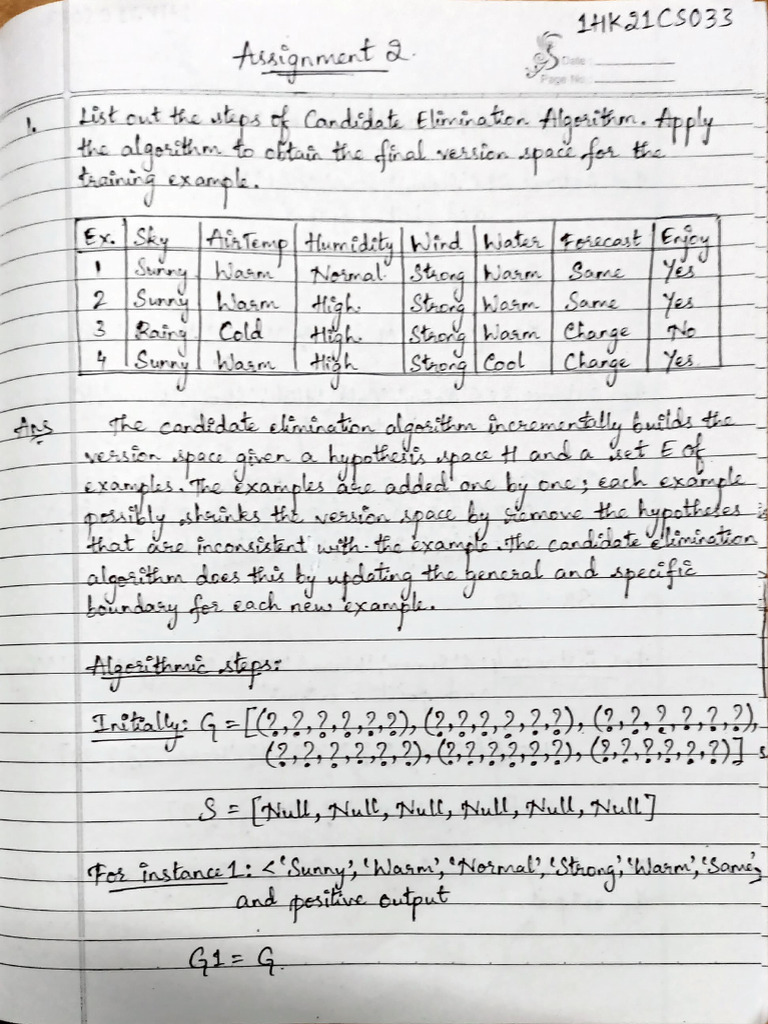 1HK21CS033
Assignment 2.
Date:
Page No:
1. List out the steps of Candidate Elimination Algorithm. Apply
the algorithm to obtain the final version space for the
training example.
Ex. Sky AirTemp Humidity Wind Water Forecast Enjoy
1 Sunny Warm Normal Strong Warm Same Yes
2 Sunny Warm High Strong Warm Same Yes
3 Rainy Cold High Strong Warm Change No
4 Sunny Warm High Strong Cool Change Yes
Ans The candidate elimination algorithm incrementally builds the
version space given a hypothesis space H and a set E of
examples. The examples are added one by one; each example
possibly shrinks the version space by remove the hypotheses
that are inconsistent with the example. The candidate elimination
algorithm does this by updating the general and specific
boundary for each new example.
Algorithmic steps:
Initially: G = [(?,?,?,?,?,?), (?,?,?,?,?,?), (?,?,?,?,?,?),
(?,?,?,?,?,?), (?,?,?,?,?,?), (?,?,?,?,?,?)]
S = [Null, Null, Null, Null, Null, Null]
For instance 1: <'Sunny', 'Warm', 'Normal', 'Strong', 'Warm', 'Same'>
and positive output
G1 = G